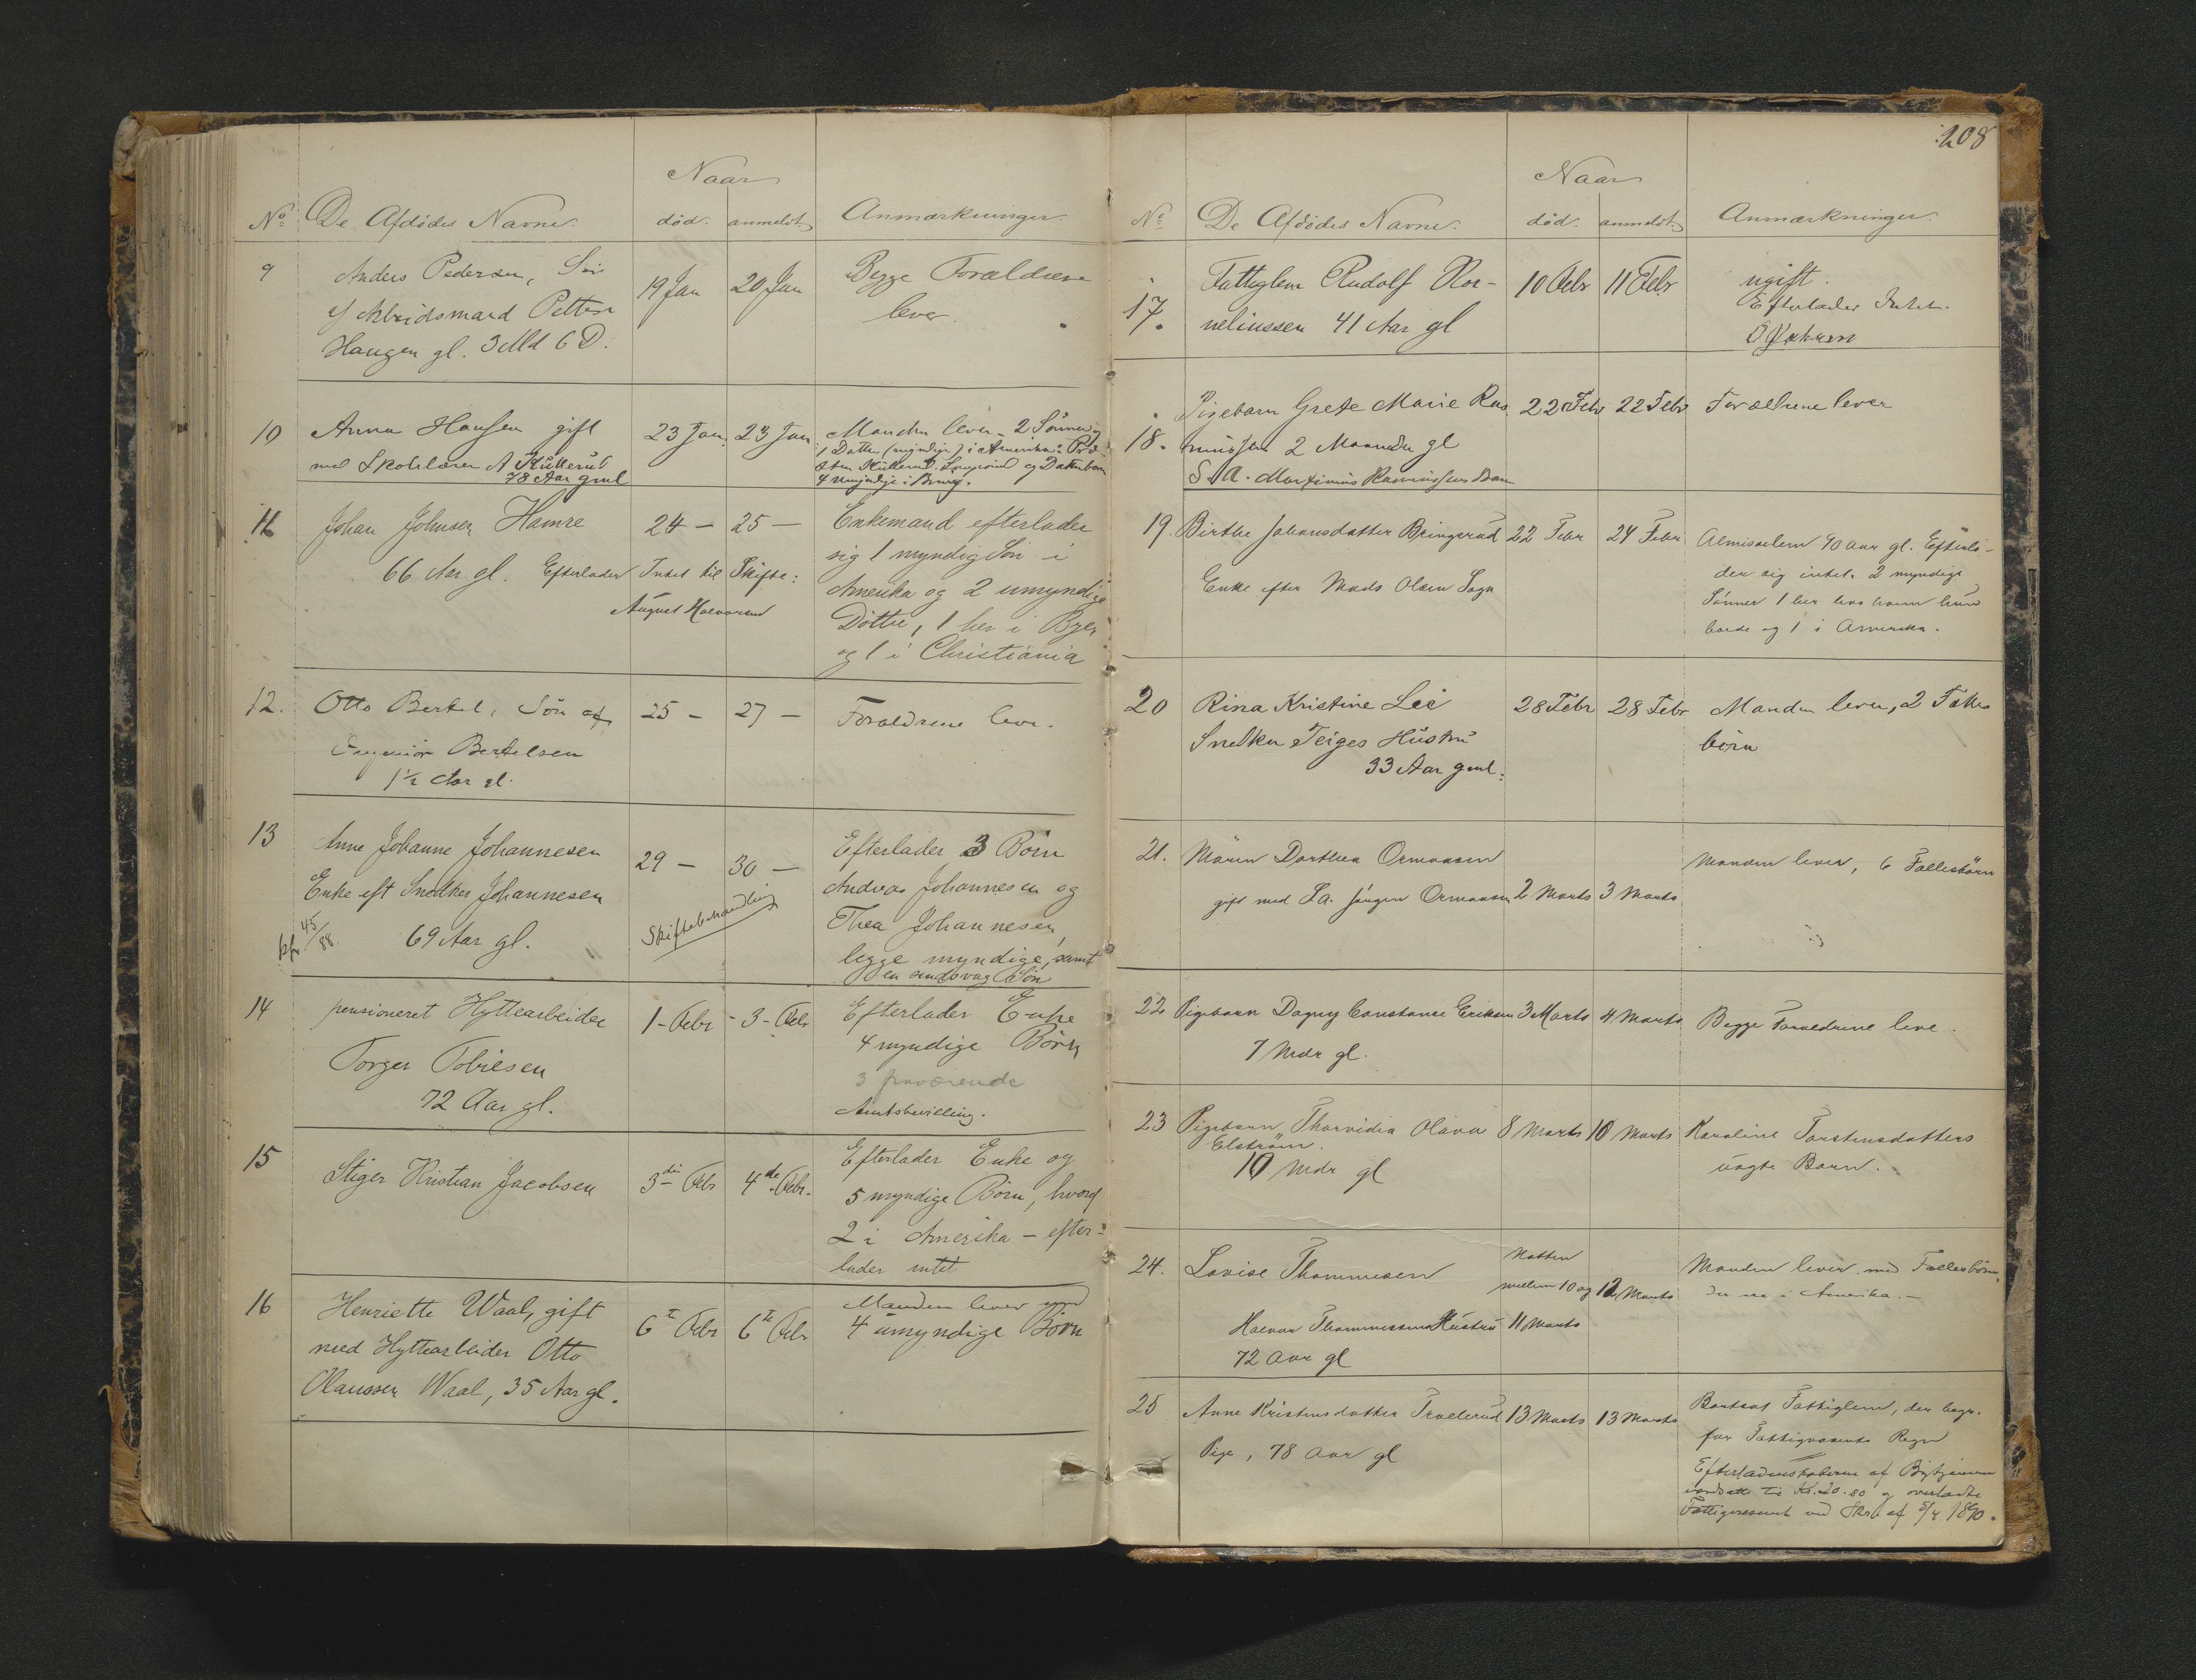 Naar
No De Afdødes Navne. død. anmeldt. Anmærkninger.
9 Anders Pedersen, Søn 19 Jan 20 Jan Begge Forældrene
af Arbeidsmand Petter lever.
Haugen gl. 3 Md 6 D.
10 Anna Hansen gift 23 Jan. 23 Jan Manden lever - 2 Sønner og
med Skolelærer A Kullerud 1 Datter (myndige) i Amerika:
78 Aar gml
11 Johan Johnsen Hamre 24 — 25 — Enkemand efterlader
sig 1 myndig Søn i
66 Aar gl. Efterlader Intet til Skifte: Amerika og 2 umyndige
August Halvorsen Døttre, 1 her i Byen
og 1 i Christiania
12. Otto Bertel, Søn af 25 — 27 — Forældrene leve.
Bertelsen
1½ Aar gl.
13 Anne Johanne Johannesen 29 — 30 — Efterlader 3 Børn
Enke eft Snedker Johannesen Andreas Johannesen og
45/88. 69 Aar gl. Skiftebehandling Thea Johannesen,
begge myndige, samt
en sindsvag Søn
14 pensioneret Hyttearbeider 1 - Febr - 3 - Febr Efterlader Enke
4 myndige Børn
Torger Tobiesen 3 fraværende
72 Aar gl. Amtsbevilling.
15 Stiger Kristian Jacobsen 3die Febr 4de Febr. Efterlader Enke og
5 myndige Børn, hvoraf
2 i Amerika — efter-
lader intet
16 Henriette Waal, gift 6te Febr 6te Febr Manden lever med
med Hyttearbeider Otto 4 umyndige Børn
Olaussen Waal, 35 Aar gl.
208
Naar
No De Afdødes Navne. død. anmeldt. Anmærkninger.
17. Fattiglem Rudolf Kor- 10 Febr 11 Febr ugift.
neliussen 41 Aar gl Efterlader Intet.
18. Pigebarn Grete Marie Ras 22 Febr 22 Febr Forældrene lever
mussen 2 Maaneder gl
S. A. Martinius Rasmussens Barn
19. Birthe Johansdatter Bringerud 22 Febr 24 Febr Almisselem 90 aar gl. Efterla-
der sig intet. 2 myndige
Enke efter Mads Olsen Saga Sønner 1 her hos hvem hun
boede og 1 i Amerika.
20 Rina Kristine Lei 28 Febr 28 Febr Manden lever, 2 Fælles
Snedker Teiges Hustru børn
33 Aar gml.
21. Maren Dorthea Ormaasen Manden lever, 6 Fællesbørn
gift med Sa. Jørgen Ormaasen 2 Marts 3 Marts
22 Pigebarn Dagny Constanse Eriksen 3 Marts 4 Marts Begge Forældrene leve.
7 Mdr gl.
23 Pigebarn Thorvidia Olava 8 Marts 10 Marts Karoline Torstensdatters
Elstrøm. uægte Barn.
10 Mdr gl
24. Lovise Thommesen Natten Manden lever med Fællesbørn,
mellem 10 og 12 Marts der er i Amerika. —
Halvor Thommesens Hustru 11 Marts
72 Aar gl
25 Anne Kristensdatter Traelerud 13 Marts 13 Marts Bortsat Fattiglem, der begr.
for Fattigvæsenets Regn
Pige, 78 Aar gl
Efterladenskaberne af
til Kr. 20.80 og overladte
Fattigvæsenet ved Skr. af 5/4 1890.